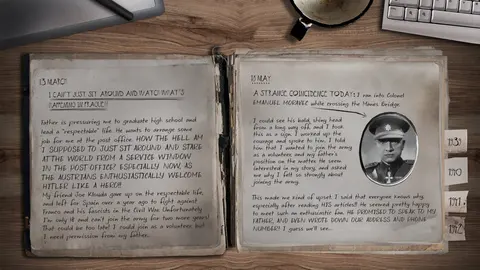 13 MARCH
I CAN'T JUST SIT AROUND AND WATCH WHAT'S
HAPPENING IN PRAGUE!!
Father is pressuring me to graduate high school and
lead a "respectable" life. He wants to arrange some
job for me at the post office. HOW THE HELL AM
I SUPPOSED TO JUST SIT AROUND AND STARE
AT THE WORLD FROM A SERVICE WINDOW
IN THE POST OFFICE? ESPECIALLY NOW, AS
THE AUSTRIANS ENTHUSIASTICALLY WELCOME
HITLER LIKE A HERO!!
My friend Joe Klouda gave up on the respectable life,
and left for Spain over a year ago to fight against
Franco and his fascists in the Civil War. Unfortunately
I'm only 18 and can't join the army for two more years!
That could be too late! I could join as a volunteer but
I need permission from my father.
13 MAY
A STRANGE COINCIDENCE TODAY: I ran into Colonel
EMANUEL MORAVEC while crossing the Mánes Bridge.
I could see his bald, shiny head
from a long way off, and I took
this as a sign. I worked up the
courage and spoke to him. I told
him that I wanted to join the army
as a volunteer and my father's
position on the matter. He seem
interested in my story, and asked
me why I felt so strongly about
joining the army.
This made me kind of upset. I said that everyone knows why,
especially after reading HIS articles! He seemed pretty happy
to meet such an enthusiastic fan. HE PROMISED TO SPEAK TO MY
FATHER, AND EVEN WROTE DOWN OUR ADDRESS AND PHONE
NUMBER! I guess we'll see...
1939
1940
1941
1942